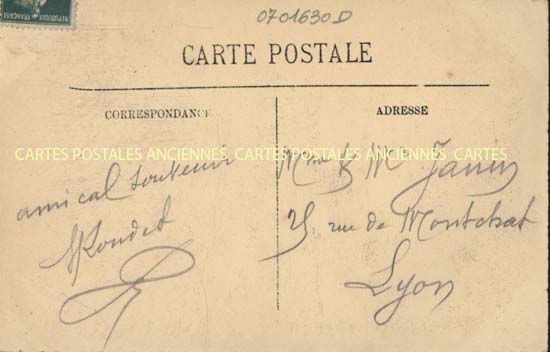 REPUBLIQUE FRANÇAISE
0701630D
CARTE POSTALE
CORRESPONDANCE
ADRESSE
CARTES POSTALES ANCIENNES CARTES POSTALES ANCIENNES CARTES
amical souvenir
Mme & Mr Janin
rue de Montchat
Lyon